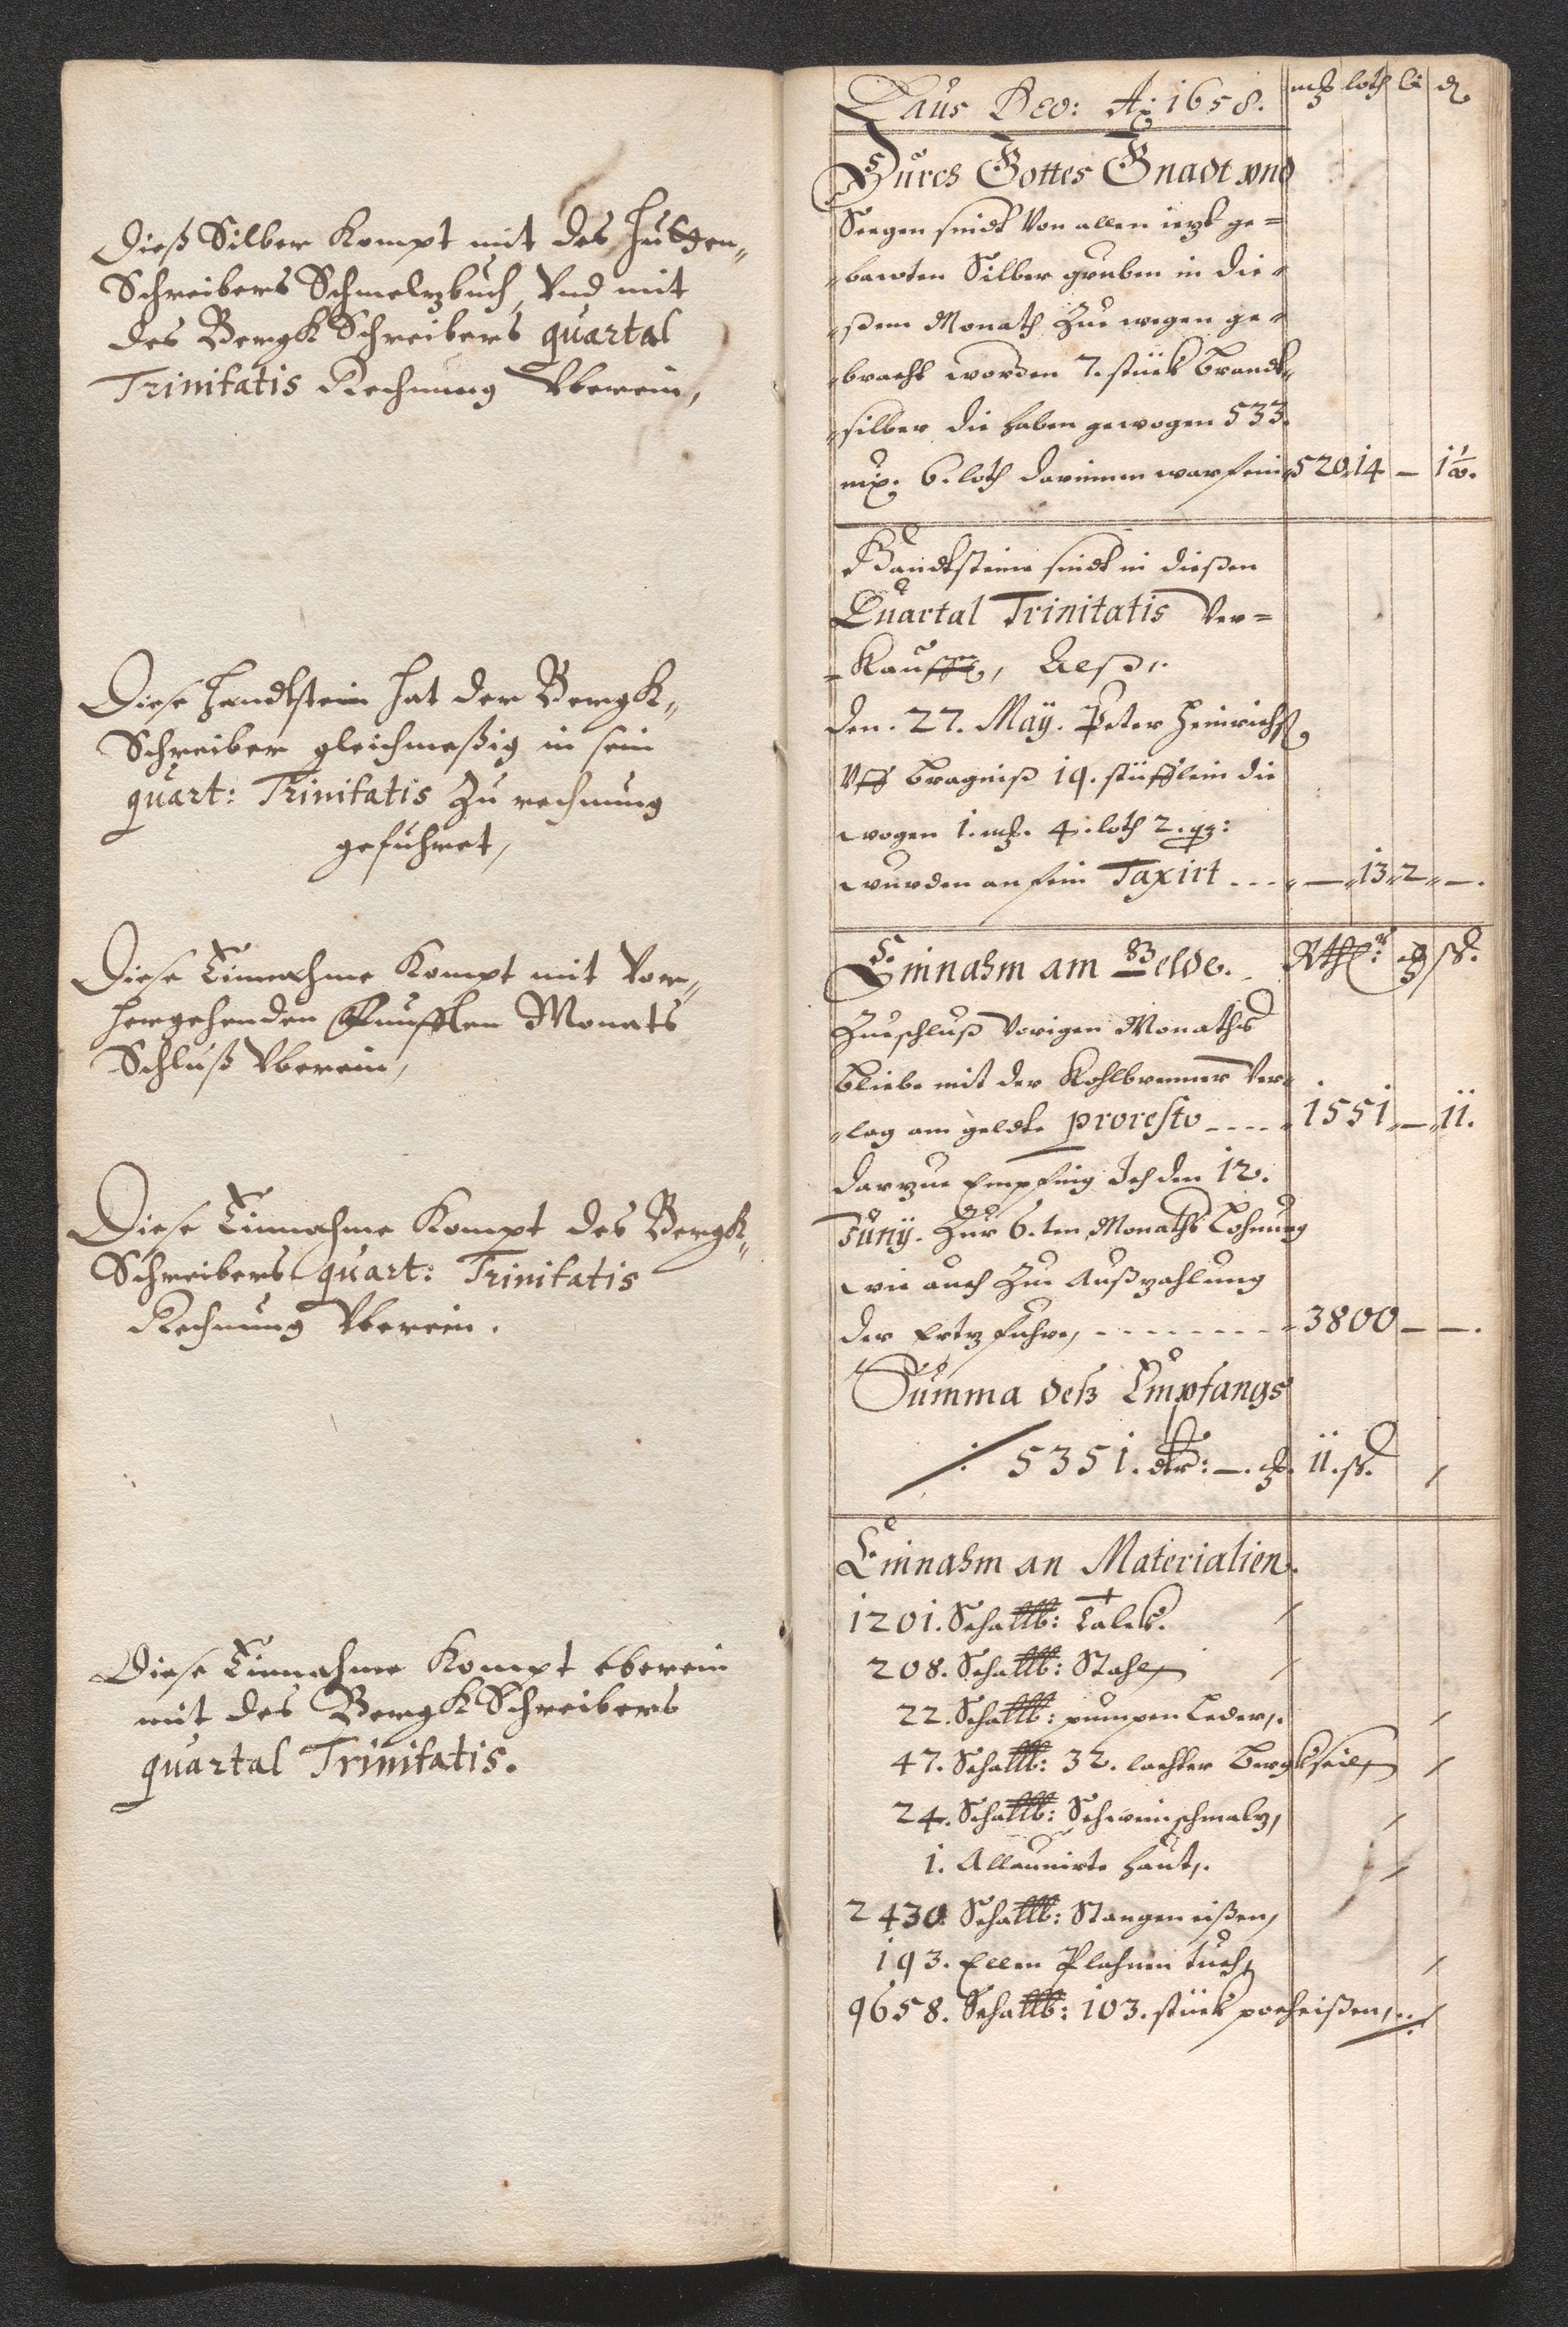 Dieß Silber Kompt mit des Hütten„
Schreibers Schmeltzbuch, Vnd mit
des BergkSchreibers quartal
Trinitatis Rechnung Vberein,
Diese Handtstein hat der Bergk„
Schreiber gleichmeßig in sein
quart: Trinitatis Zu rechnung
geführet,
Diese Einnahme Kompt mit Vor„
hergehenden Fünfften Monats
Schluß Vberein,
Diese Einnahme Kompt des Bergk„
Schreibers quart: Trinitatis
Rechnung Vberein.
Diese Einnahme Kompt vberein
mit des BergkSchreibers
quartal Trinitatis.
Laus Deo: Aō: 1658. mƷ loth q ₰
Durch Gottes Gnadt vnd
Seegen sindt Von allen ietzt ge=
„bawten Silber gruben in die„
„ßem Monath Zue wegen ge„
„bracht worden 7. stück brandt„
„silber die haben gewogen 533.
mƷ. 6. loth darinnen war fein 520. 14 — 1 1/2.
Handtsteine sindt in dießen
Quartal Trinitatis Ver=
=Kaufft, Alß,.
den. 27. Maÿ. Peter Heinrich
Vff 19. stüfflein die
wogen 1. mƷ. 4. loth 2. q:
wurden an fein Taxirt ---- — „ 13 „ 2 „ —.
Einnahm am Gelde. Rthlr: ß.
Zueschluß Vorigen Monaths
bliebe mit der Kohlbrenner Ver„
„lag am geldte proresto ---- 1551 „ — „ 11.
darzue Empfing Ich den 12.
Junÿ. Zur 6.ten Monaths Lohnung
wie auch Zue Außzahlung
der Ertzfuhre, -------- 3800 — —.
Summa deß Empfangs
5351. dlr: —. 11. ß.
Einnahm an Materialien.
1201. Schallb: Talch.
208. Schallb: Stahl,
22. Schallb: pumpen Leder,.
47. Schallb: 32. lachter Bergkseil,
24. Schallb: Schweinschmaltz,
1. Allaunirte Haut,.
2430. Schallb: Stangen eißen,
193. Ellen Plahnen tuch,
9658. Schallb: 103. stück pocheißen,..